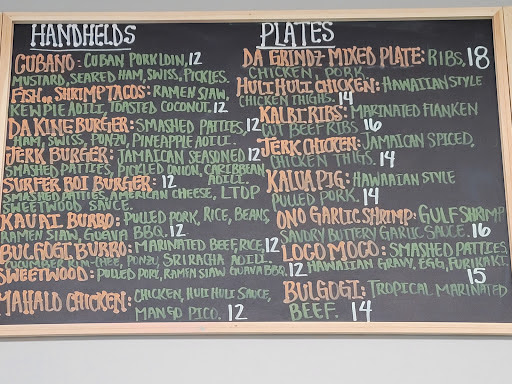 HANDHELDS
CUBANO: CUBAN PORK LOIN, 12
MUSTARD, SEARED HAM, SWISS, PICKLES.
FISH OR SHRIMP TACOS: RAMEN SLAW,
KEWPIE AOILI, TOASTED COCONUT. 12
DA KINE BURGER: SMASHED PATTIES, 12
HAM, SWISS, PONZU, PINEAPPLE AOILI.
JERK BURGER: JAMAICAN SEASONED 12
SMASHED PATTIES, PICKLED ONION, CARIBBEAN
AOILI.
SURFER BOI BURGER: 12
SMASHED PATTIES, AMERICAN CHEESE, LTOP
SWEETWOOD SAUCE.
KAUAI BURRO: PULLED PORK, RICE, BEANS,
RAMEN SLAW, GUAVA BBQ. 12
BULGOGI BURRO: MARINATED BEEF, RICE, 12
CUCUMBER KIM-CHEE, PONZU, SRIRACHA AOILI.
SWEETWOOD: PULLED PORK, RAMEN SLAW GUAVA BBQ, 12
MAHALO CHICKEN: CHICKEN, HULI HULI SAUCE,
MANGO PICO. 12
PLATES
DA GRINDZ MIXED PLATE: RIBS, 18
CHICKEN, PORK.
HULI HULI CHICKEN: HAWAIIAN STYLE
CHICKEN THIGHS. 14
KALBI RIBS: MARINATED FLANKEN
CUT BEEF RIBS 16
JERK CHICKEN: JAMAICAN SPICED,
CHICKEN THIGS. 14
KALUA PIG: HAWAIIAN STYLE
PULLED PORK. 14
ONO GARLIC SHRIMP: GULF SHRIMP
SAVORY BUTTERY GARLIC SAUCE. 16
LOCO MOCO: SMASHED PATTIES,
HAWAIIAN GRAVY, EGG, FURIKAKE.
15
BULGOGI: TROPICAL MARINATED
BEEF. 14